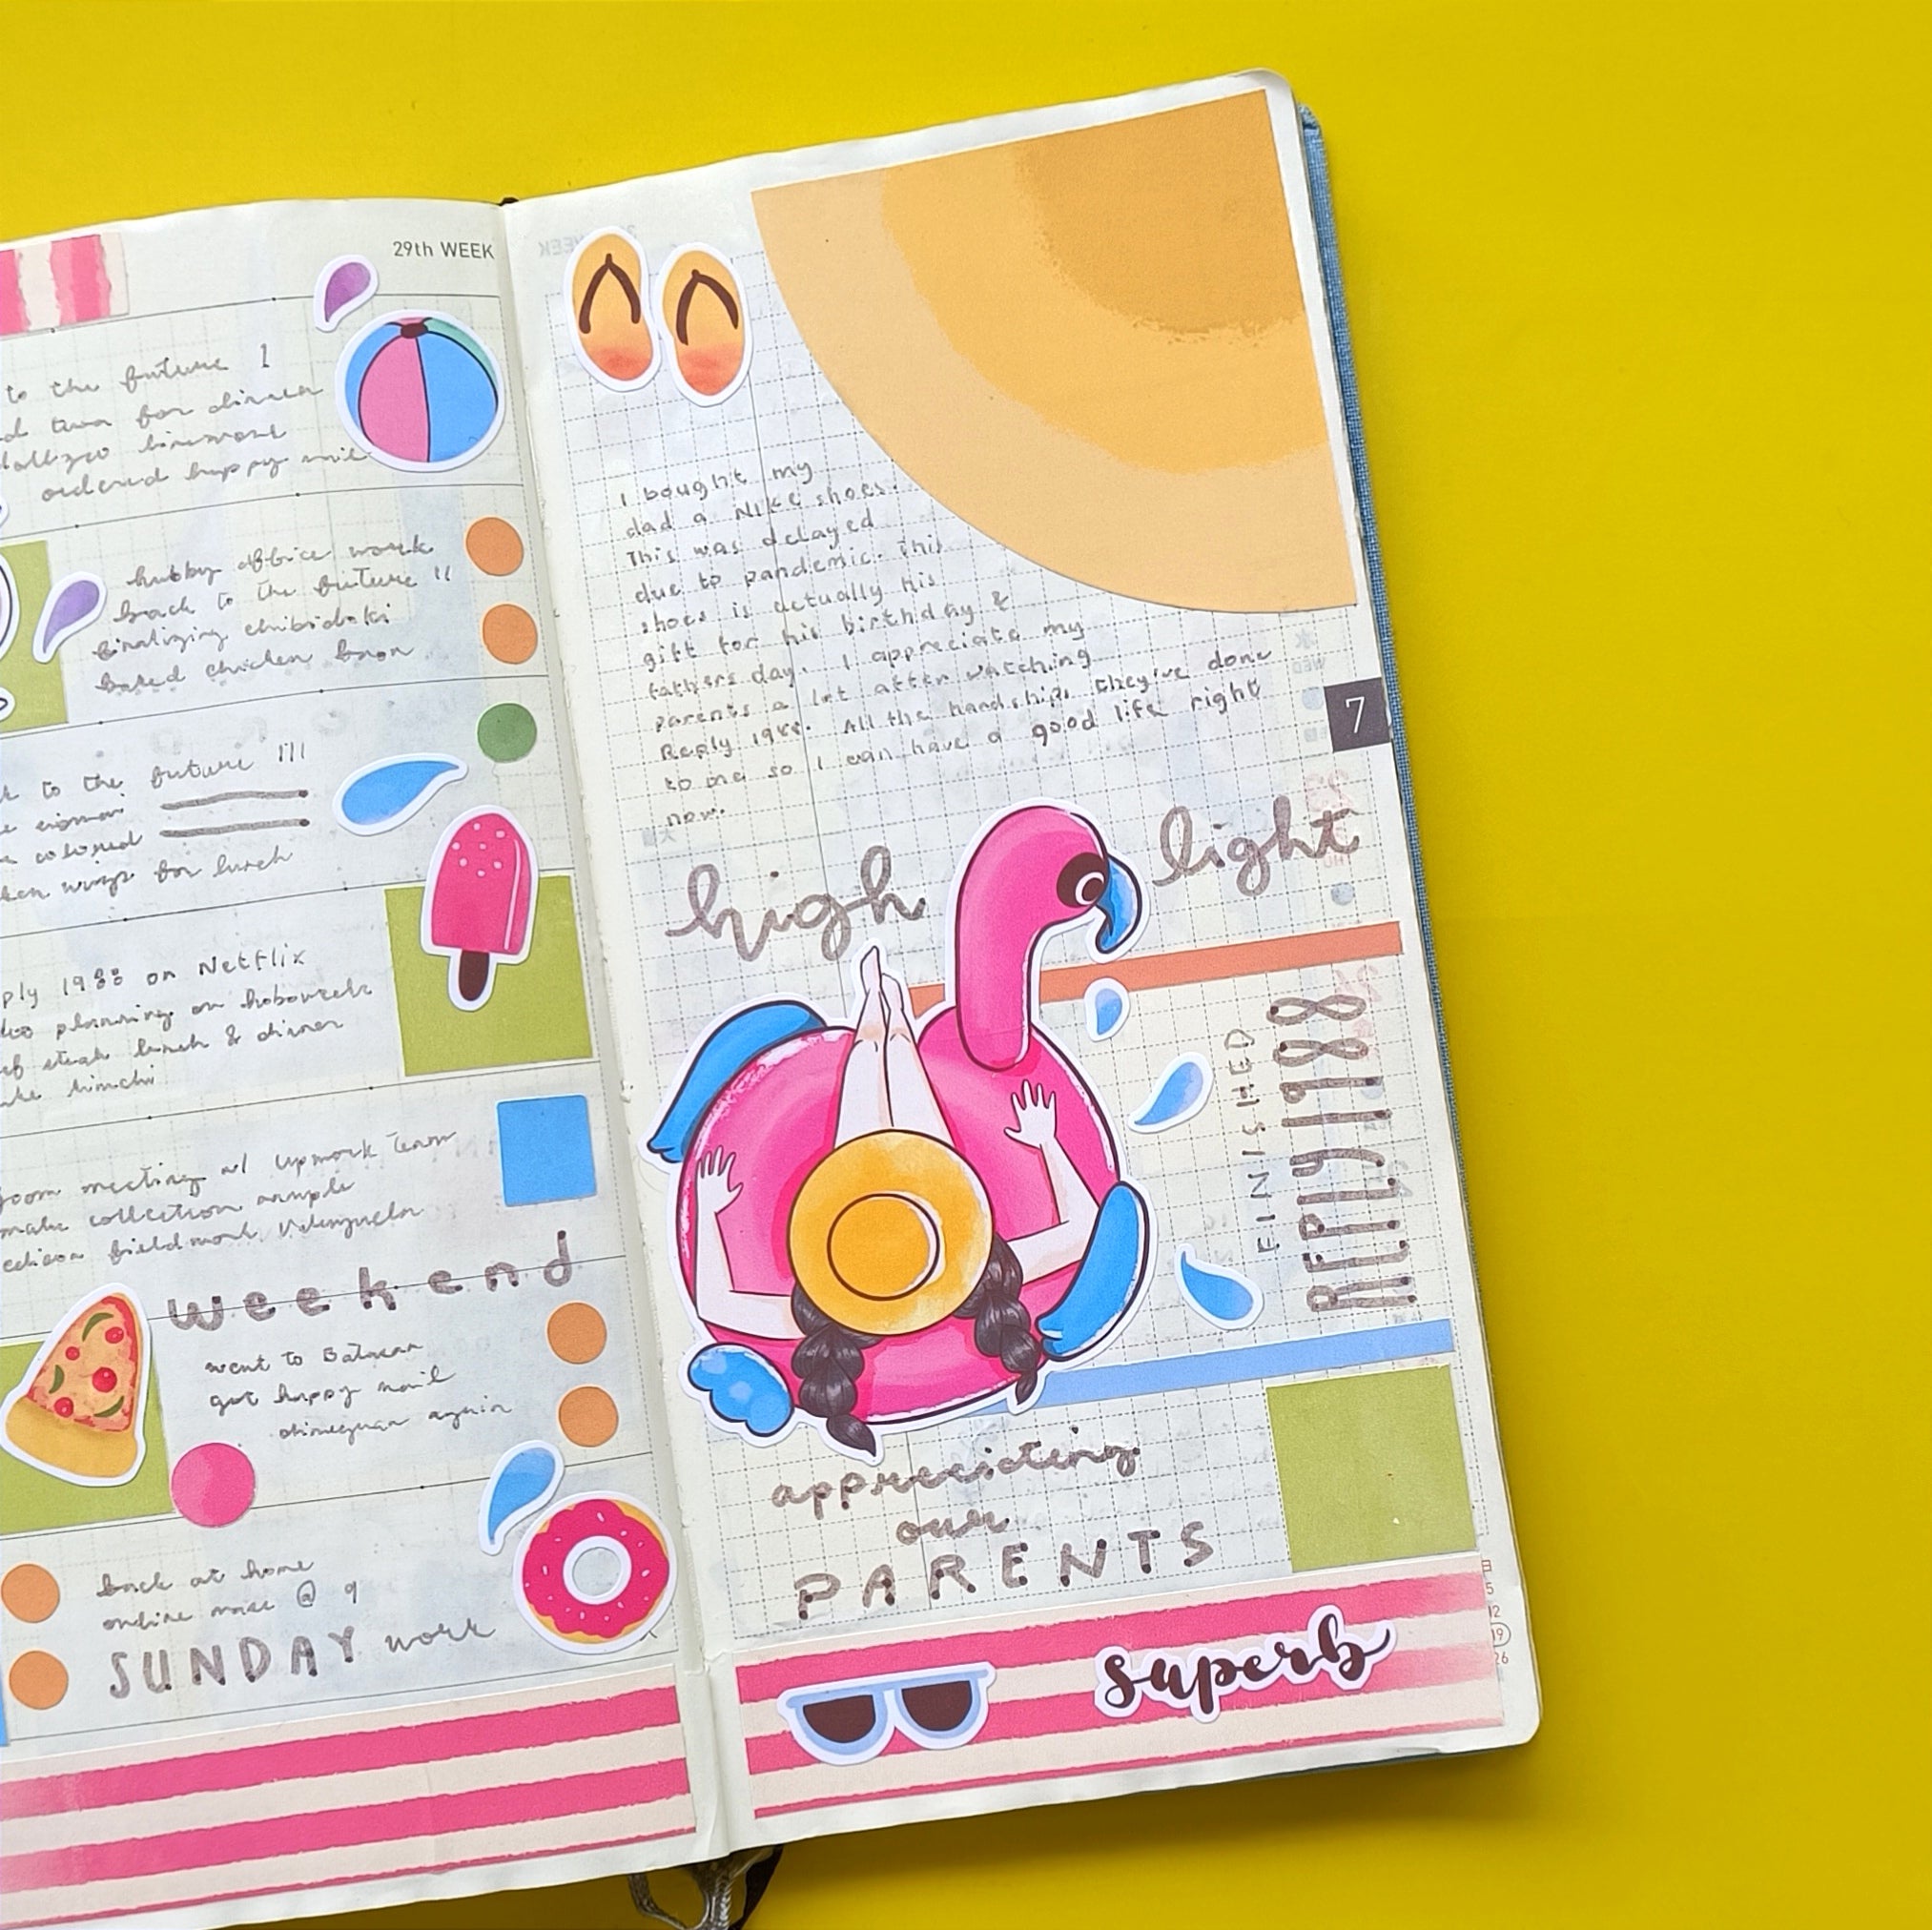 29th WEEK
to the future I
for dinner
ordered happy mail
hubby office work
back to the future II
finalizing chibidoki
baked chicken
to the future III
colored
wings for lunch
ply 1988 on Netflix
planning on hobonichi
ef steak lunch & dinner
kimchi
oom meeting w/ upwork team
make collection sample
fieldwork Valenzuela
weekend
went to Bataan
got happy mail
again
back at home
online mass @ 9
SUNDAY work
I bought my
dad a NIKE shoes.
This was delayed
due to pandemic. This
shoes is actually his
gift for his birthday &
fathers day. I appreciate my
parents a lot after watching
Reply 1988. All the hardships they've done
to me so I can have a good life right
now.
7
high light
FINISHED
REPLY 1988
appreciating
our
PARENTS
superb
日
5
12
19
26